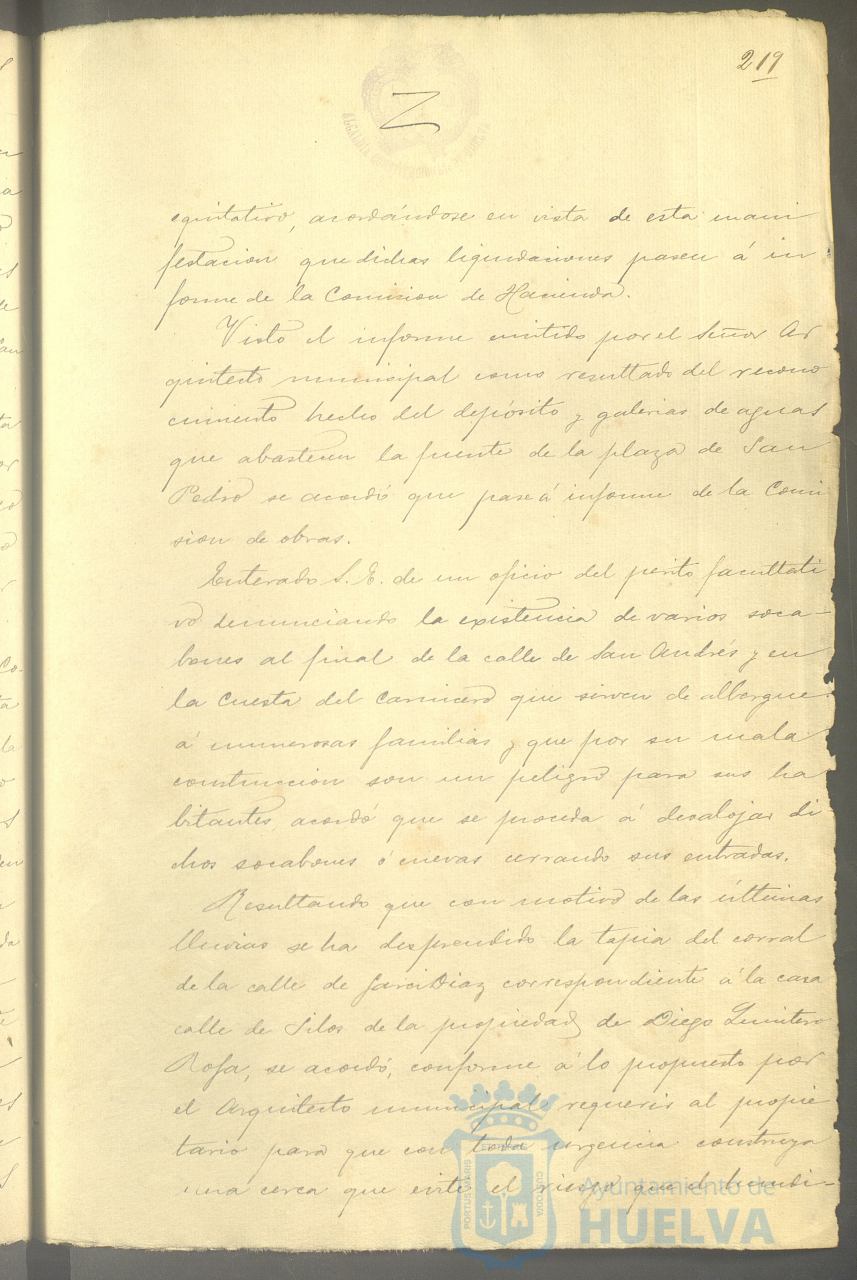 219
equitativo, acordándose en vista de esta mani
festacion que dichas liquidaciones pasen á in
forme de la Comision de Hacienda.
Visto el informe emitido por el Señor Ar
quitecto municipal como resultado del recono
cimiento hecho del depósito y galerias de aguas
que abastecen la fuente de la plaza de San
Pedro se acordó que pase á informe de la Comi
sion de obras.
Enterado S. E. de un oficio del perito facultati
vo denunciando la existencia de varios soca-
bones al final de la calle de San Andrés y en
la Cuesta del Carnicero que sirven de albergue
á numerosas familias y que por su mala
construccion son un peligro para sus ha
bitantes, acordó que se proceda á desalojar di
chos socabones ó cuevas cerrando sus entradas.
Resultando que con motivo de las últimas
lluvias se ha desprendido la tapia del corral
de la calle de Garci Diaz correspondiente á la casa
calle de Silos de la propiedad de Diego Quintero
Rofa, se acordó, conforme á lo propuesto por
el Arquitecto municipal requerir al propie
tario para que con toda urgencia construya
una cerca que evite el riesgo que el hundi-
Ayuntamiento de
HUELVA
PORTUS MARIS
CUSTODIA